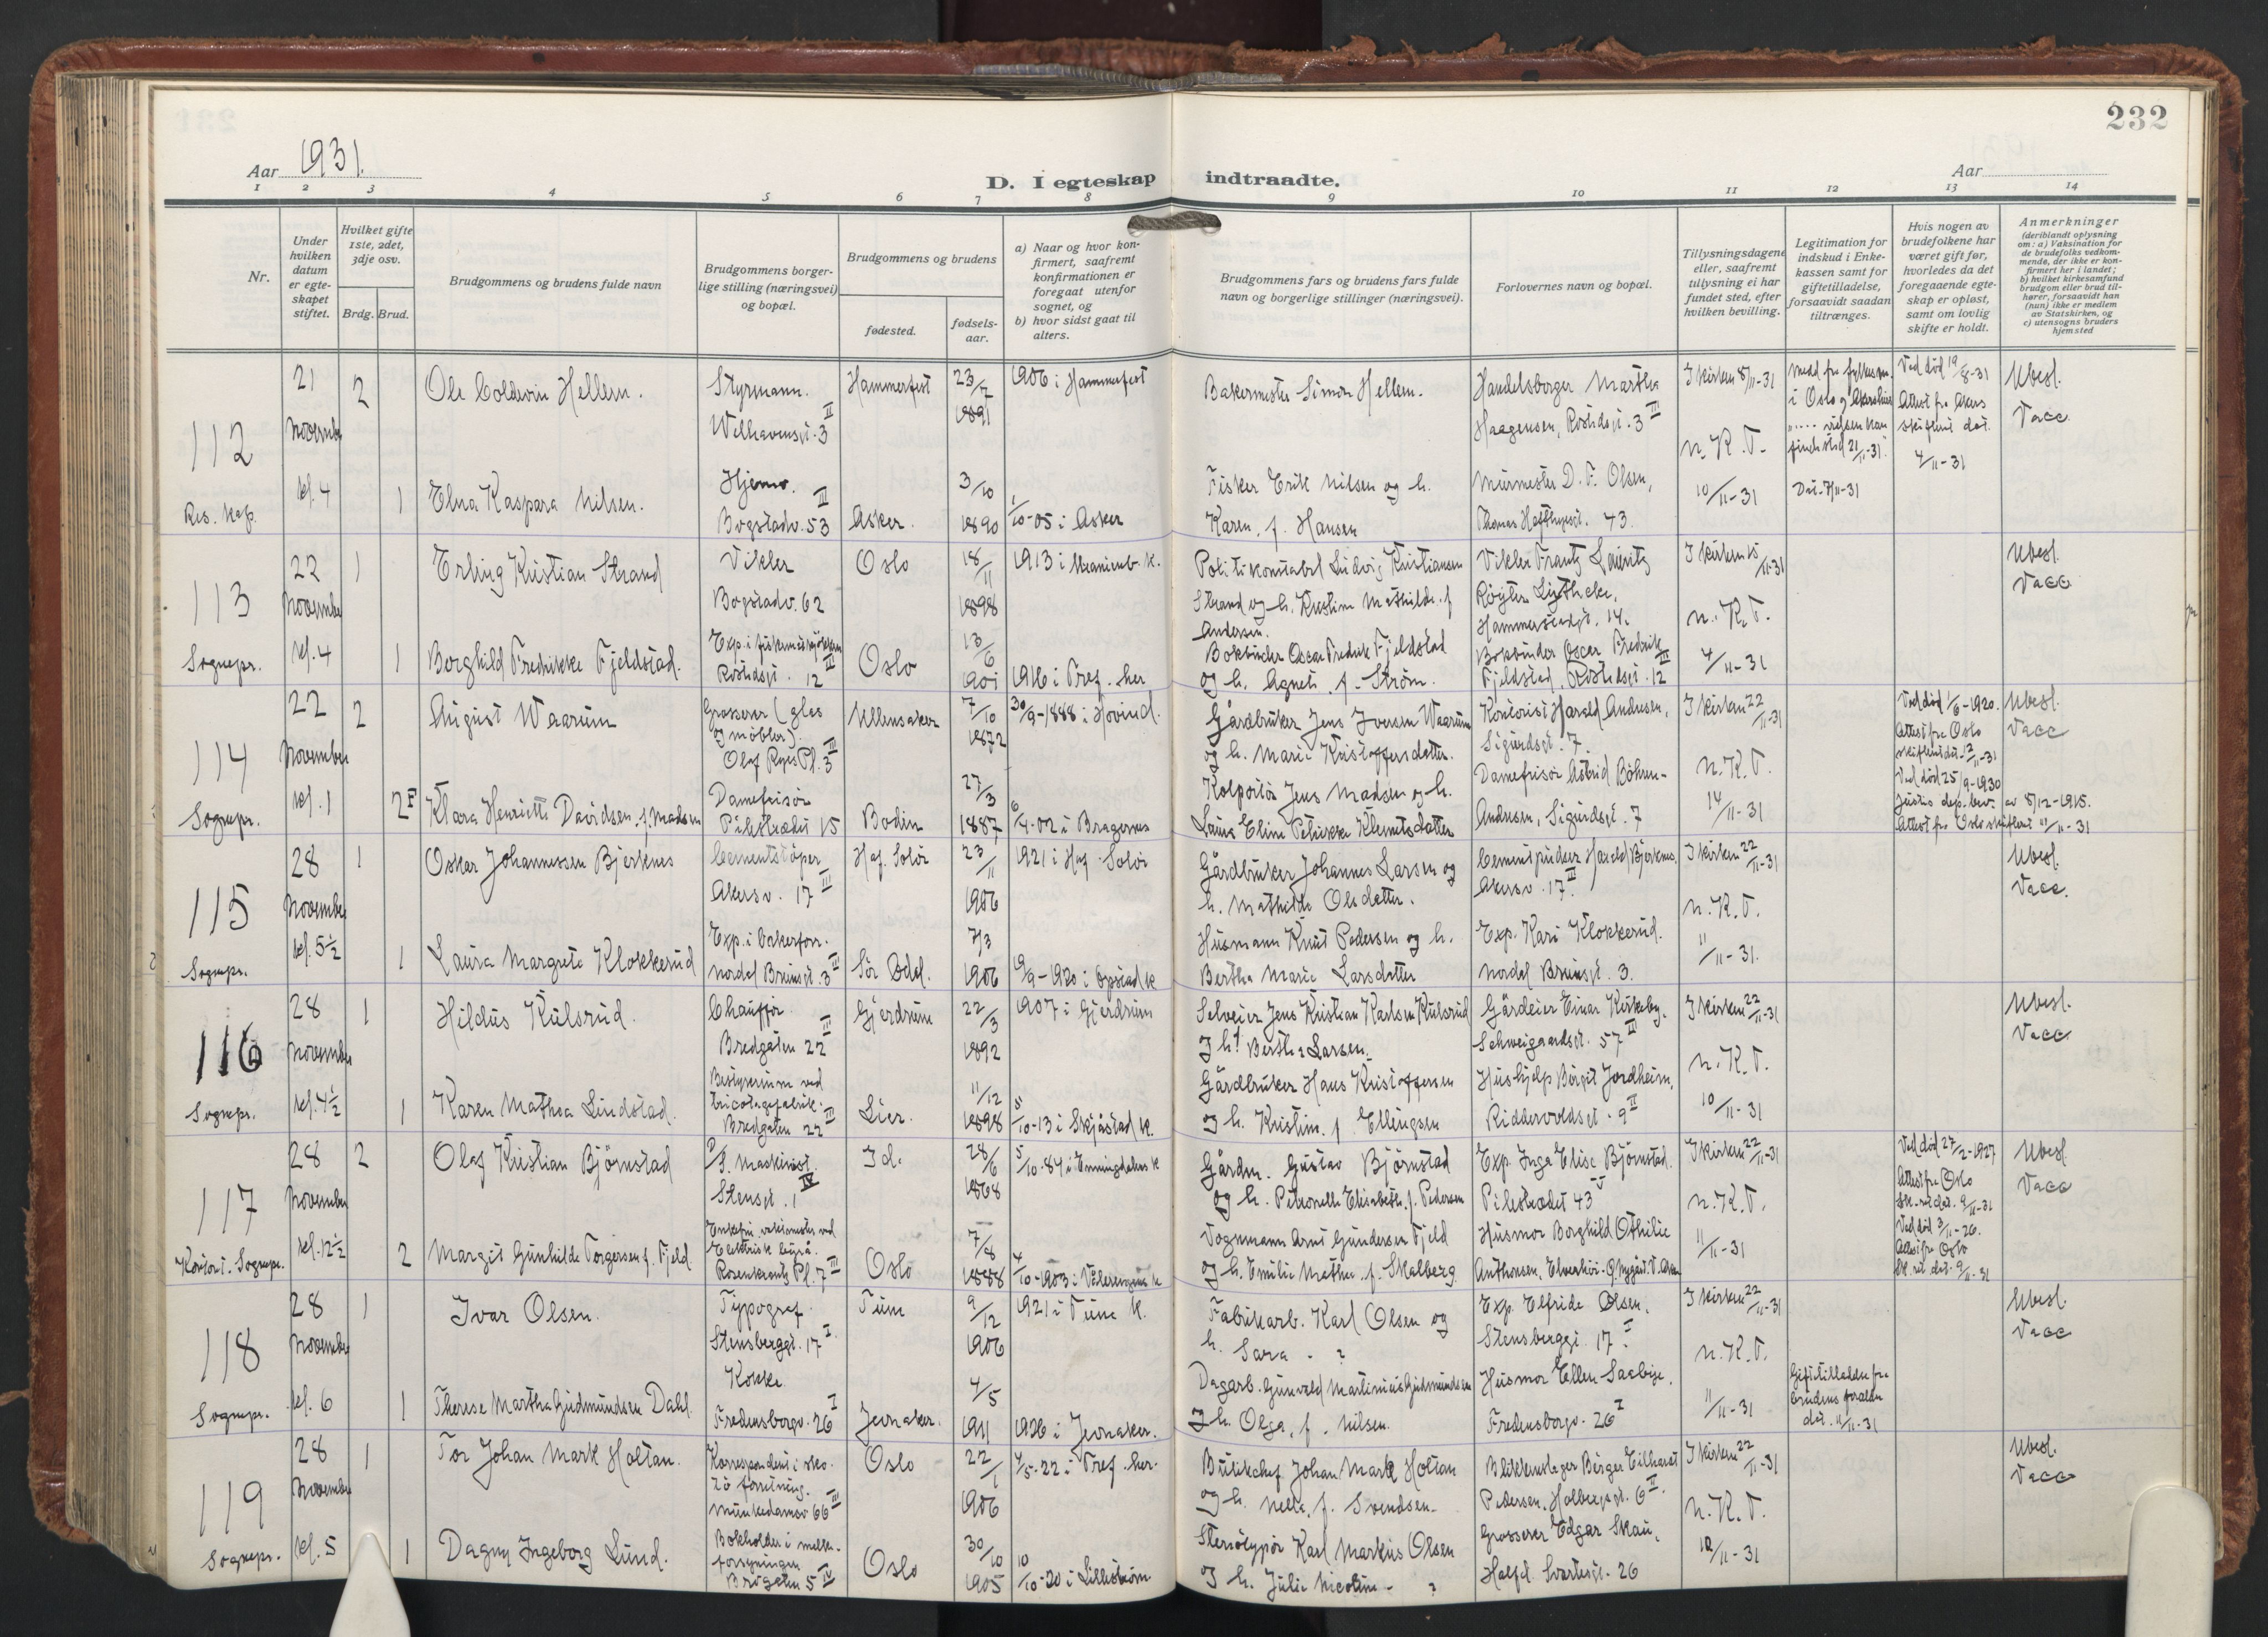 232
Aar 1931.
D. I egteskap indtraadte.
Aar
1 2 3 4 5 6 7 8 9 10 11 12 13 14
Nr.
Under hvilken datum er egteskapet stiftet.
Hvilket gifte 1ste, 2det, 3dje osv.
Brdg. Brud.
Brudgommens og brudens fulde navn
Brudgommens borgerlige stilling (næringsvei) og bopæl.
Brudgommens og brudens
fødested.
fødselsaar.
a) Naar og hvor konfirmert, saafremt konfirmationen er foregaat utenfor sognet, og
b) hvor sidst gaat til alters.
Brudgommens fars og brudens fars fulde navn og borgerlige stillinger (næringsvei).
Forlovernes navn og bopæl.
Tillysningsdagene eller, saafremt tillysning ei har fundet sted, efter hvilken bevilling.
Legitimation for indskud i Enkekassen samt for giftetilladelse, forsaavidt saadan tiltrænges.
Hvis nogen av brudefolkene har været gift før, hvorledes da det foregaaende egteskap er opløst, samt om lovlig skifte er holdt.
Anmerkninger
(deriblandt oplysning om: a) Vaksination for de brudefolks vedkommende, der ikke er konfirmert her i landet; b) hvilket kirkesamfund brudgom eller brud tilhører, forsaavidt han (hun) ikke er medlem av Statskirken, og c) utensogns bruders hjemsted
112
21 November kl. 4
Res. kap.
2 Ole Coldevin Hellem.
Styrmann.
Welhavensgt. 3 II
Hammerfest
23/7 1891
1906 i Hammerfest
Bakermester Simon Hellem.
Handelsborger Martha Haagensen, Röstedsgt. 3 III
I kirken 8/11-31
n. K. T.
10/11-31
Ved död 19/8-31
Attest fra Akers skifterett dat. 4/11-31
Ubesl.
Vacc
1 Elna Kaspara Nilsen.
Hjemv. III
Bogstadv. 53
Asker.
3/10 1890
1/10-05 i Asker
Fisker Erik Nilsen og h. Karen, f. Hansen
Murmester D. F. Olsen, Thomas Heftyesgt. 43.
Dat. 7/11-31
113
22 November kl. 4
Sognepr.
1 Erling Kristian Strand
Vikler
Bogstadv. 62
Oslo
18/11 1898
1913 i Uranienb. k.
Politikonstabel Ludvig Kristiansen Strand og h. Kristine Mathilde. f Andersen.
Vikler Frantz Lauritz
Hammerstadgt. 14.
I kirken 15/11-31
n. K. T.
4/11-31
Ubesl.
Vacc
1 Borghild Fredrikke Fjeldstad.
Röstedsgt. 12 III
Oslo
13/6 1901
1916 i Tref. her
Bokbinder Oscar Fredrik Fjeldstad og h. Agnete. f. Ström.
Bokbinder Oscar Fredrik Fjeldstad, Röstedsgt. 12 III
114
22 November kl. 1
Sognepr.
2 August Waarum
Grosserer (glas og möbler).
Olaf Ryes Pl. 3 III
Ullensaker
7/10 1872
30/9-1888 i Hovind.
Gårdbruker Jens Iversen Waarum og h. Marie Kristoffersdatter.
Kontorist Harald Andresen, Sigurdsgt. 7.
I kirken 22/11-31
n. K. T.
14/11-31
Ved död 1/6-1920.
Attest fra Oslo skifterett dat. 13/11-31
Ubesl.
Vacc
2F Klara Henriette Davidsen. f. Madsen
Damefrisör
Pilestrædet 15
Bodin
27/3 1887
6/4-02 i Bragernes
Kolportör Jens Madsen og h. Laura Eline Petrikke Klemetsdatter
Damefrisör Astrid Böhren-Andresen, Sigurdsgt. 7
Ved död 25/9-1930
Justis dep. bev. av 8/12-1915.
Attest fra Oslo skifterett 11/11-31
115
28 November kl. 5½
Sognepr.
1 Oskar Johannessen Bjerknes
Cementstöper
Akersv. 17 III
Hof. Solör
23/11 1906
1921 i Hof Solör
Gårdbruker Johannes Larsen og h. Mathilde Olsdatter.
Cementpudser Harald Bjerknes, Akersv. 17 II.
I kirken 22/11-31
n. K. T.
11/11-31.
Ubesl.
Vacc.
1 Laura Margrete Klokkerud
Exp. i bakerforr.
Nordal Brunsgt. 3 III
Sör Odal.
7/3 1906
19/9-1920 i Opstad k
Husmann Knut Pedersen og h. Bertha Marie Larsdatter
Exp. Kari Klokkerud.
Nordal Brunsgt. 3.
116
28 November kl. 4½
Sognepr.
1 Hildus Kulsrud.
Chauffør.
Bredgaten 22 III
Gjerdrum
22/3 1892
1907 i Gjerdrum
Selveier Jens Kristian Karlsen Kulsrud og h. Berthe Larsen.
Gårdeier Einar Kirkeby. Schweigaardsgt. 57 III
I kirken 22/11-31
n. K. T.
10/11-31
Ubesl.
Vacc.
1 Karen Mathea Lindstad.
Bestyrerinne ved tricotagefabrik.
Bredgaten 22 III
Lier.
11/12 1898
5/10-13 i Skjåstad k.
Gårdbruker Hans Kristoffersen og h. Kristine. f. Ellingsen
Hushjelp Borgit Jordheim, Riddervoldsgt. 9 II
117
28 November kl. 12½
Kontoret. Sognepr.
2 Olaf Kristian Björnstad
P. Maskinist.
Stensgt. 1 IV
Id.
28/6 1868
5/10-84 i Enningdalens k
Gårdm. Gustav Björnstad og h. Petronelle Elisabeth. f. Pedersen
Exp. Inga Elise Björnstad. Pilestrædet 43 V
I kirken 22/11-31
n. K. T.
11/11-31
Ved död 27/2-1927
Attest fra Oslo sk. rett dat. 9/11-31
Ubesl
Vacc
2 Margit Gunhilde Torgersen f. Fjeld.
Enkefru, verksmester ved Elektrisk byrå.
Rosenkrantz Pl. 7 III
Oslo
7/8 1888
4/10-1903 i Vålerengens k
Vognmann Arnt Gundersen Fjeld og h. Emilie Mathea. f. Skalberg
Husmor Borghild Othilie Anthonsen,
Ved död 3/11-26.
Attest fra Oslo sk. rett dat. 9/11-31
118
28 November kl. 6
Sognepr.
1 Ivar Olsen.
Typograf.
Stensberggt. 17 I.
Tune
9/12 1906
1921 i Tune k.
Fabrikarb. Karl Olsen og h. Sara - ?
Exp. Elfride Olsen, Stensberggt. 17 I
I kirken 22/11-31
n. K. T.
11/11-31
Ubesl.
Vacc
1 Therese Martha Gudmundsen Dahl.
Kokke
Fredensborgv. 26 I
Jevnaker.
4/5 1911
1926 i Jevnaker.
Dagarb. Gunvald Martinius Gudmundsen og h. Olga, f. Nilsen.
Husmor Ellen Saabye, Fredensborgv. 26 I
Giftetilladelse fra brudens foreldre dat. 11/11-31
119
28 November kl. 5
Sognepr.
1 Tor Johan Mark Holtan.
Korrespondent i skotöforretning.
Munkedamsv 66 III
Oslo
22/1 1906
4/5-22 i Tref. her.
Butikchef Johan Mark Holtan og h. Nelle, f. Svendsen-
Blikkenslager Birger Eilhardt Pedersen, Holbergsgt. 6 II.
I kirken 22/11-31
n. K. T.
12/11-31
Ubesl.
Vacc
1 Dagny Ingeborg Lund.
Bokholder i melkeforsyningen
Brögaten 5 IV
Oslo
30/10 1905
10/10-20 i Lilleström
Stereotypör Karl Markus Olsen og h. Julie Nicoline - ?
Grosserer Edgar Skau, Halfd. Svartesgt. 26